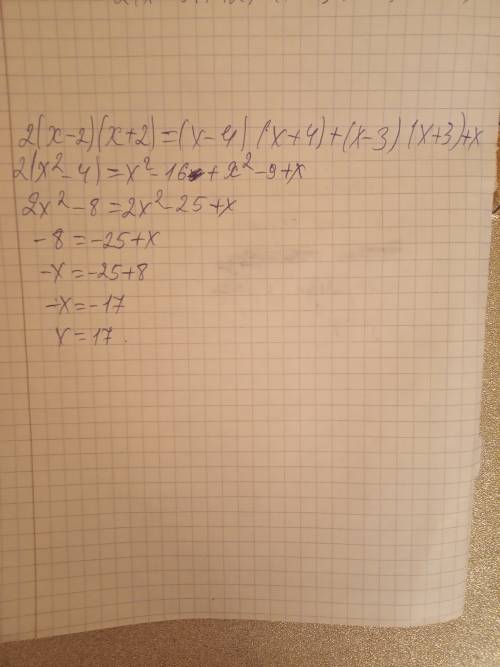 2(x-2)(x+2)=(x-4)(x+4)+(x-3)(x+3)+x
2(x²-4)=x²-16+x²-9+x
2x²-8=2x²-25+x
-8=-25+x
-x=-25+8
-x=-17
x=17.